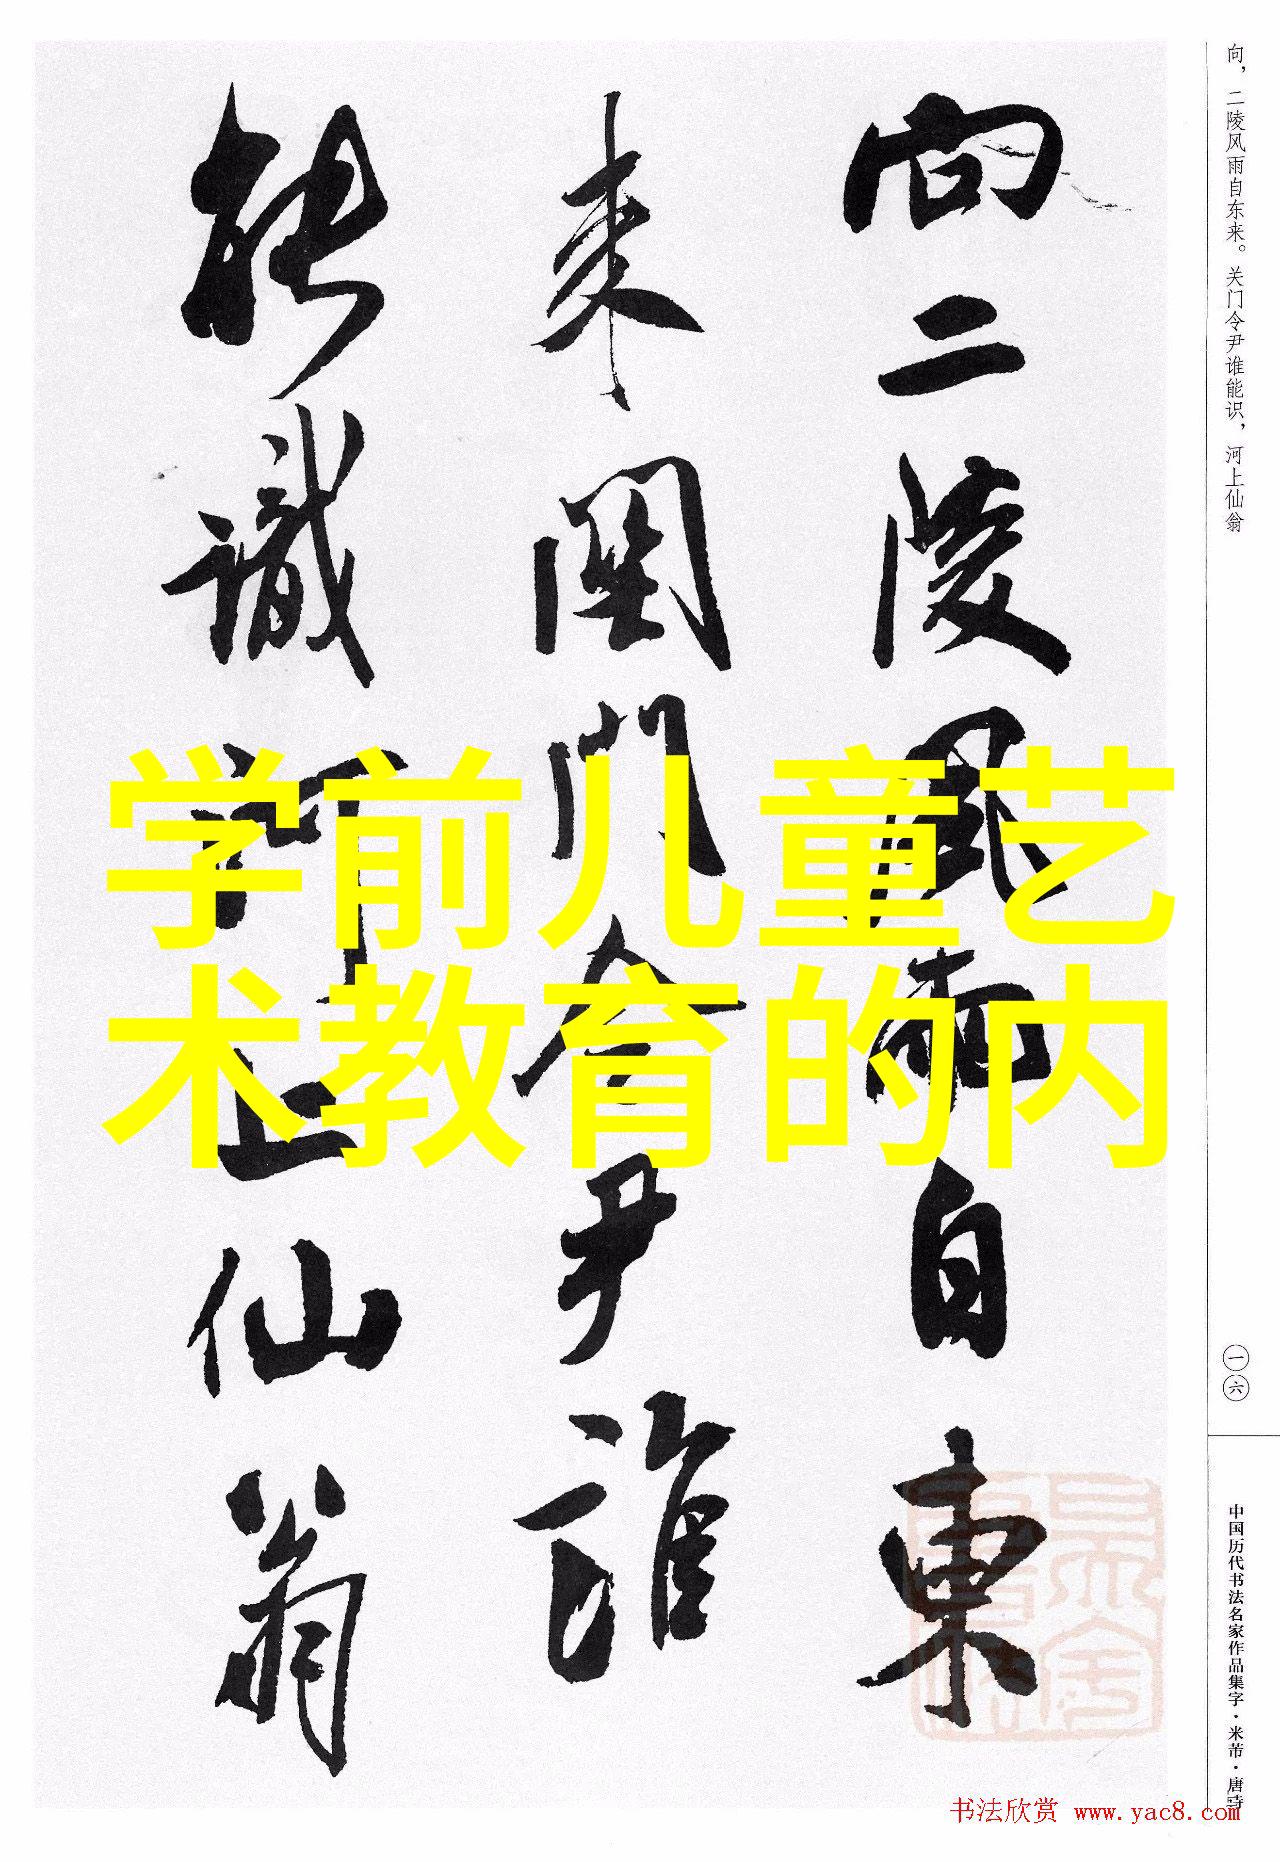 向二陵风雨自东
来關門令尹誰
能識河上仙翁
学前儿童艺
术教育的内
向，二陵风雨自东来。关门令尹谁能识，河上仙翁
一六
中国历代书法名家作品集字·米芾·唐诗
书法欣赏 www.yac8.com